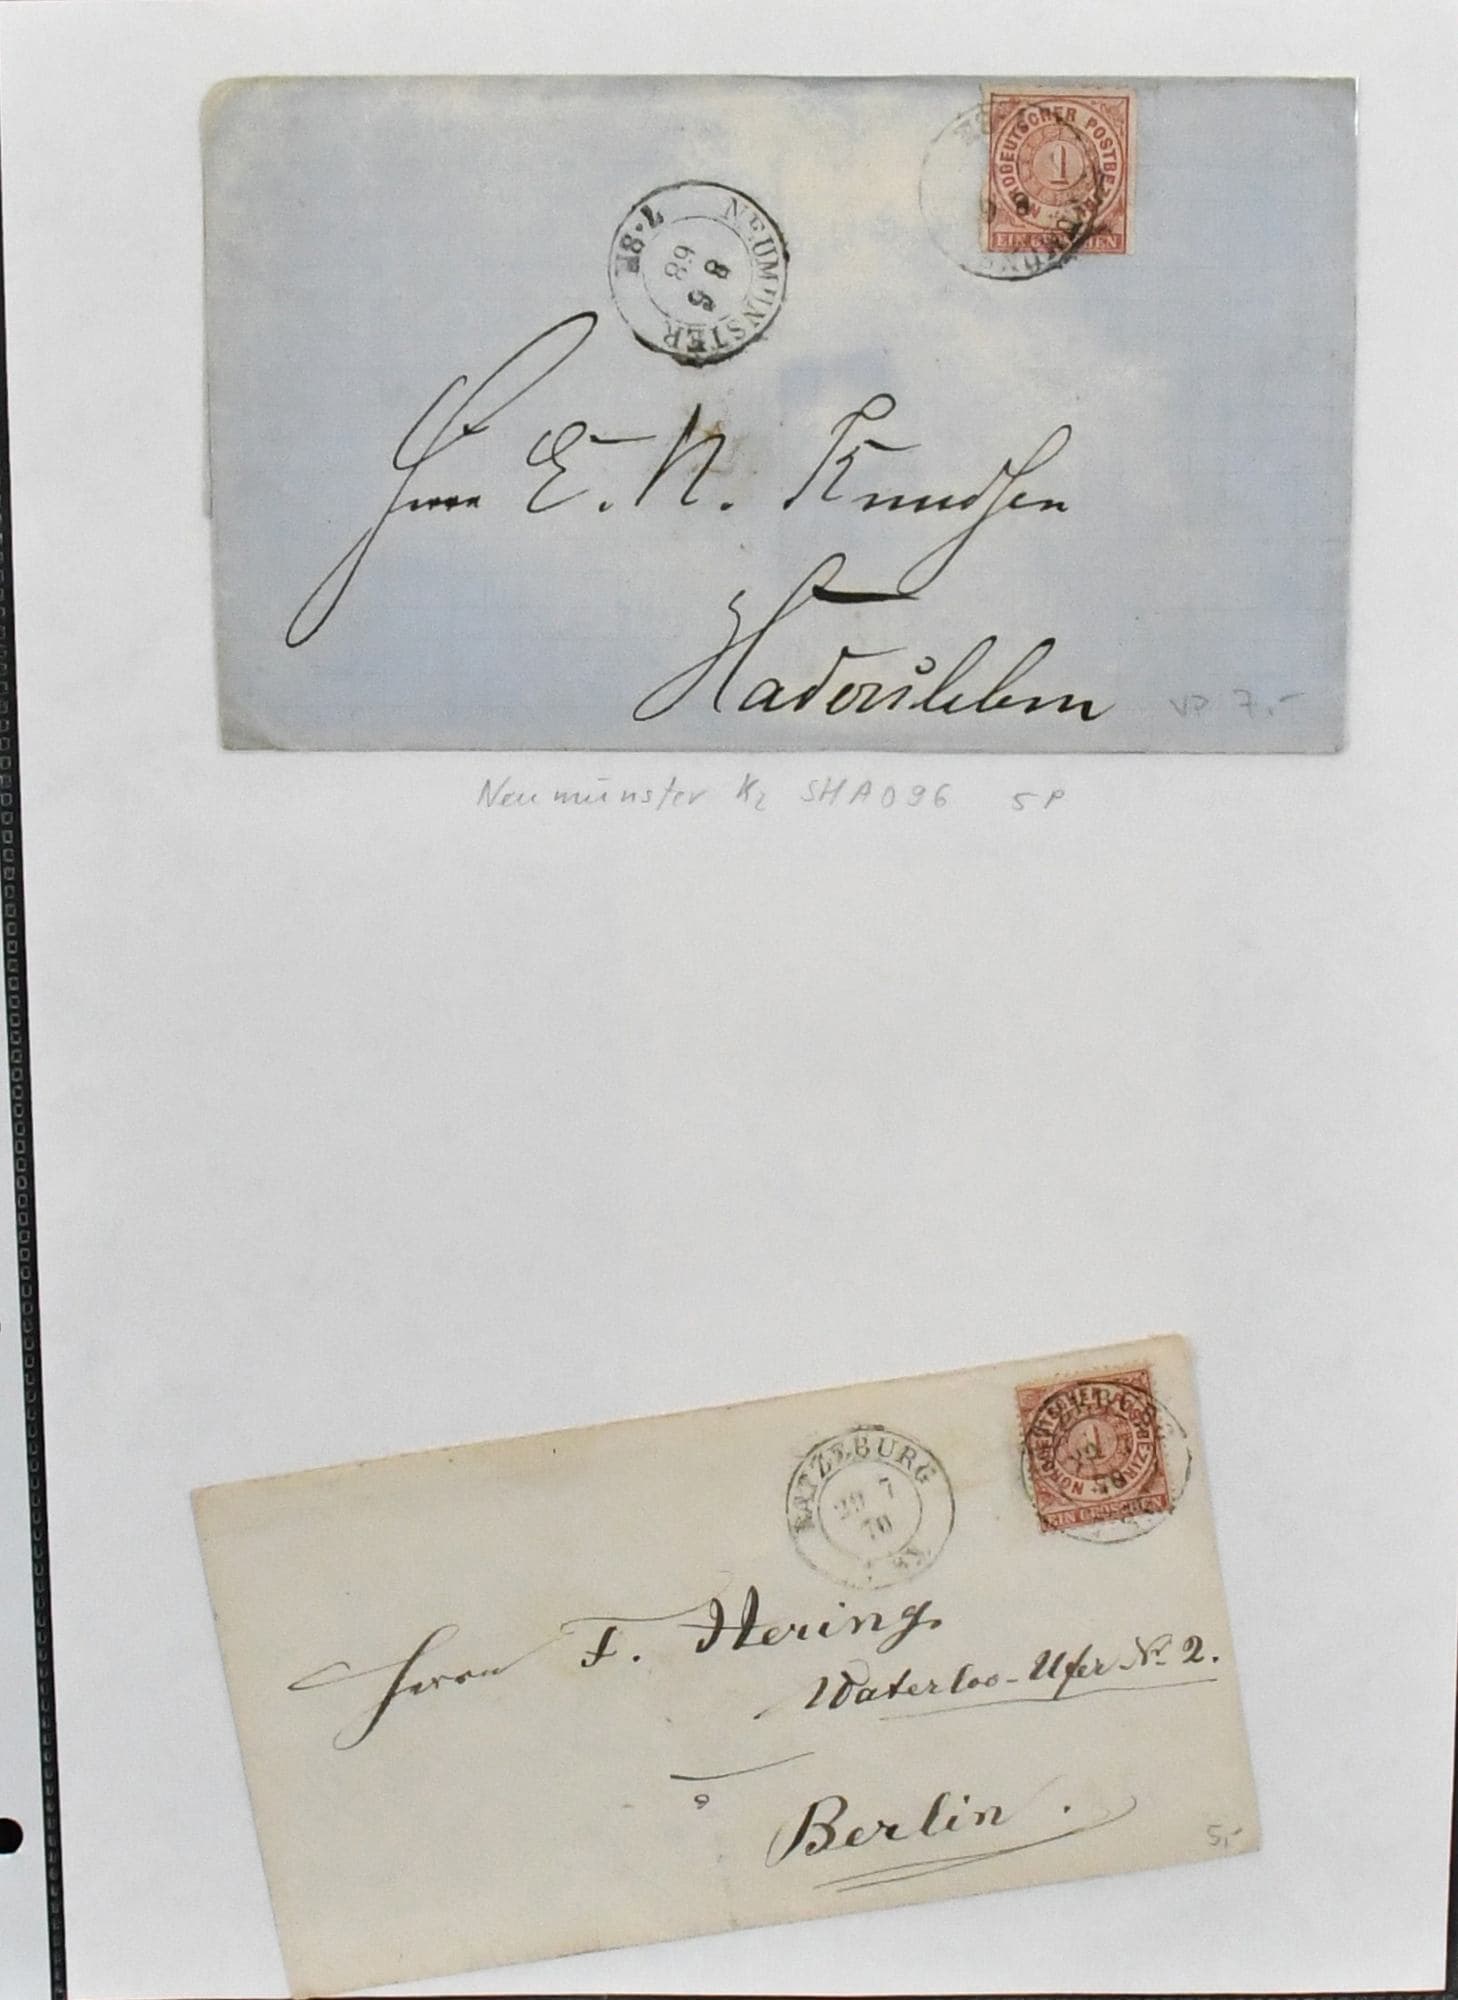 NORDDEUTSCHER POSTBEZIRK
1
EIN GROSCHEN
NEUMÜNSTER
8 6
68
7-8F
Herrn E. N. Knudsen
Hadersleben
VP 7,-
Neumünster K2 SHA096 5P
NORDDEUTSCHER POSTBEZIRK
1
EIN GROSCHEN
RATZEBURG
29 7
70
Herrn F. Hering
Waterloo-Ufer No 2.
Berlin.
5,-